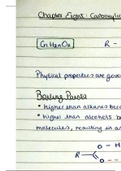 Chapter Eight: Carboxylic
CnH2nO2 R -
Physical properties are gove
Boiling Points
• higher than alkanes bec
• higher than alcohols b
molecules, resulting in a
O - H